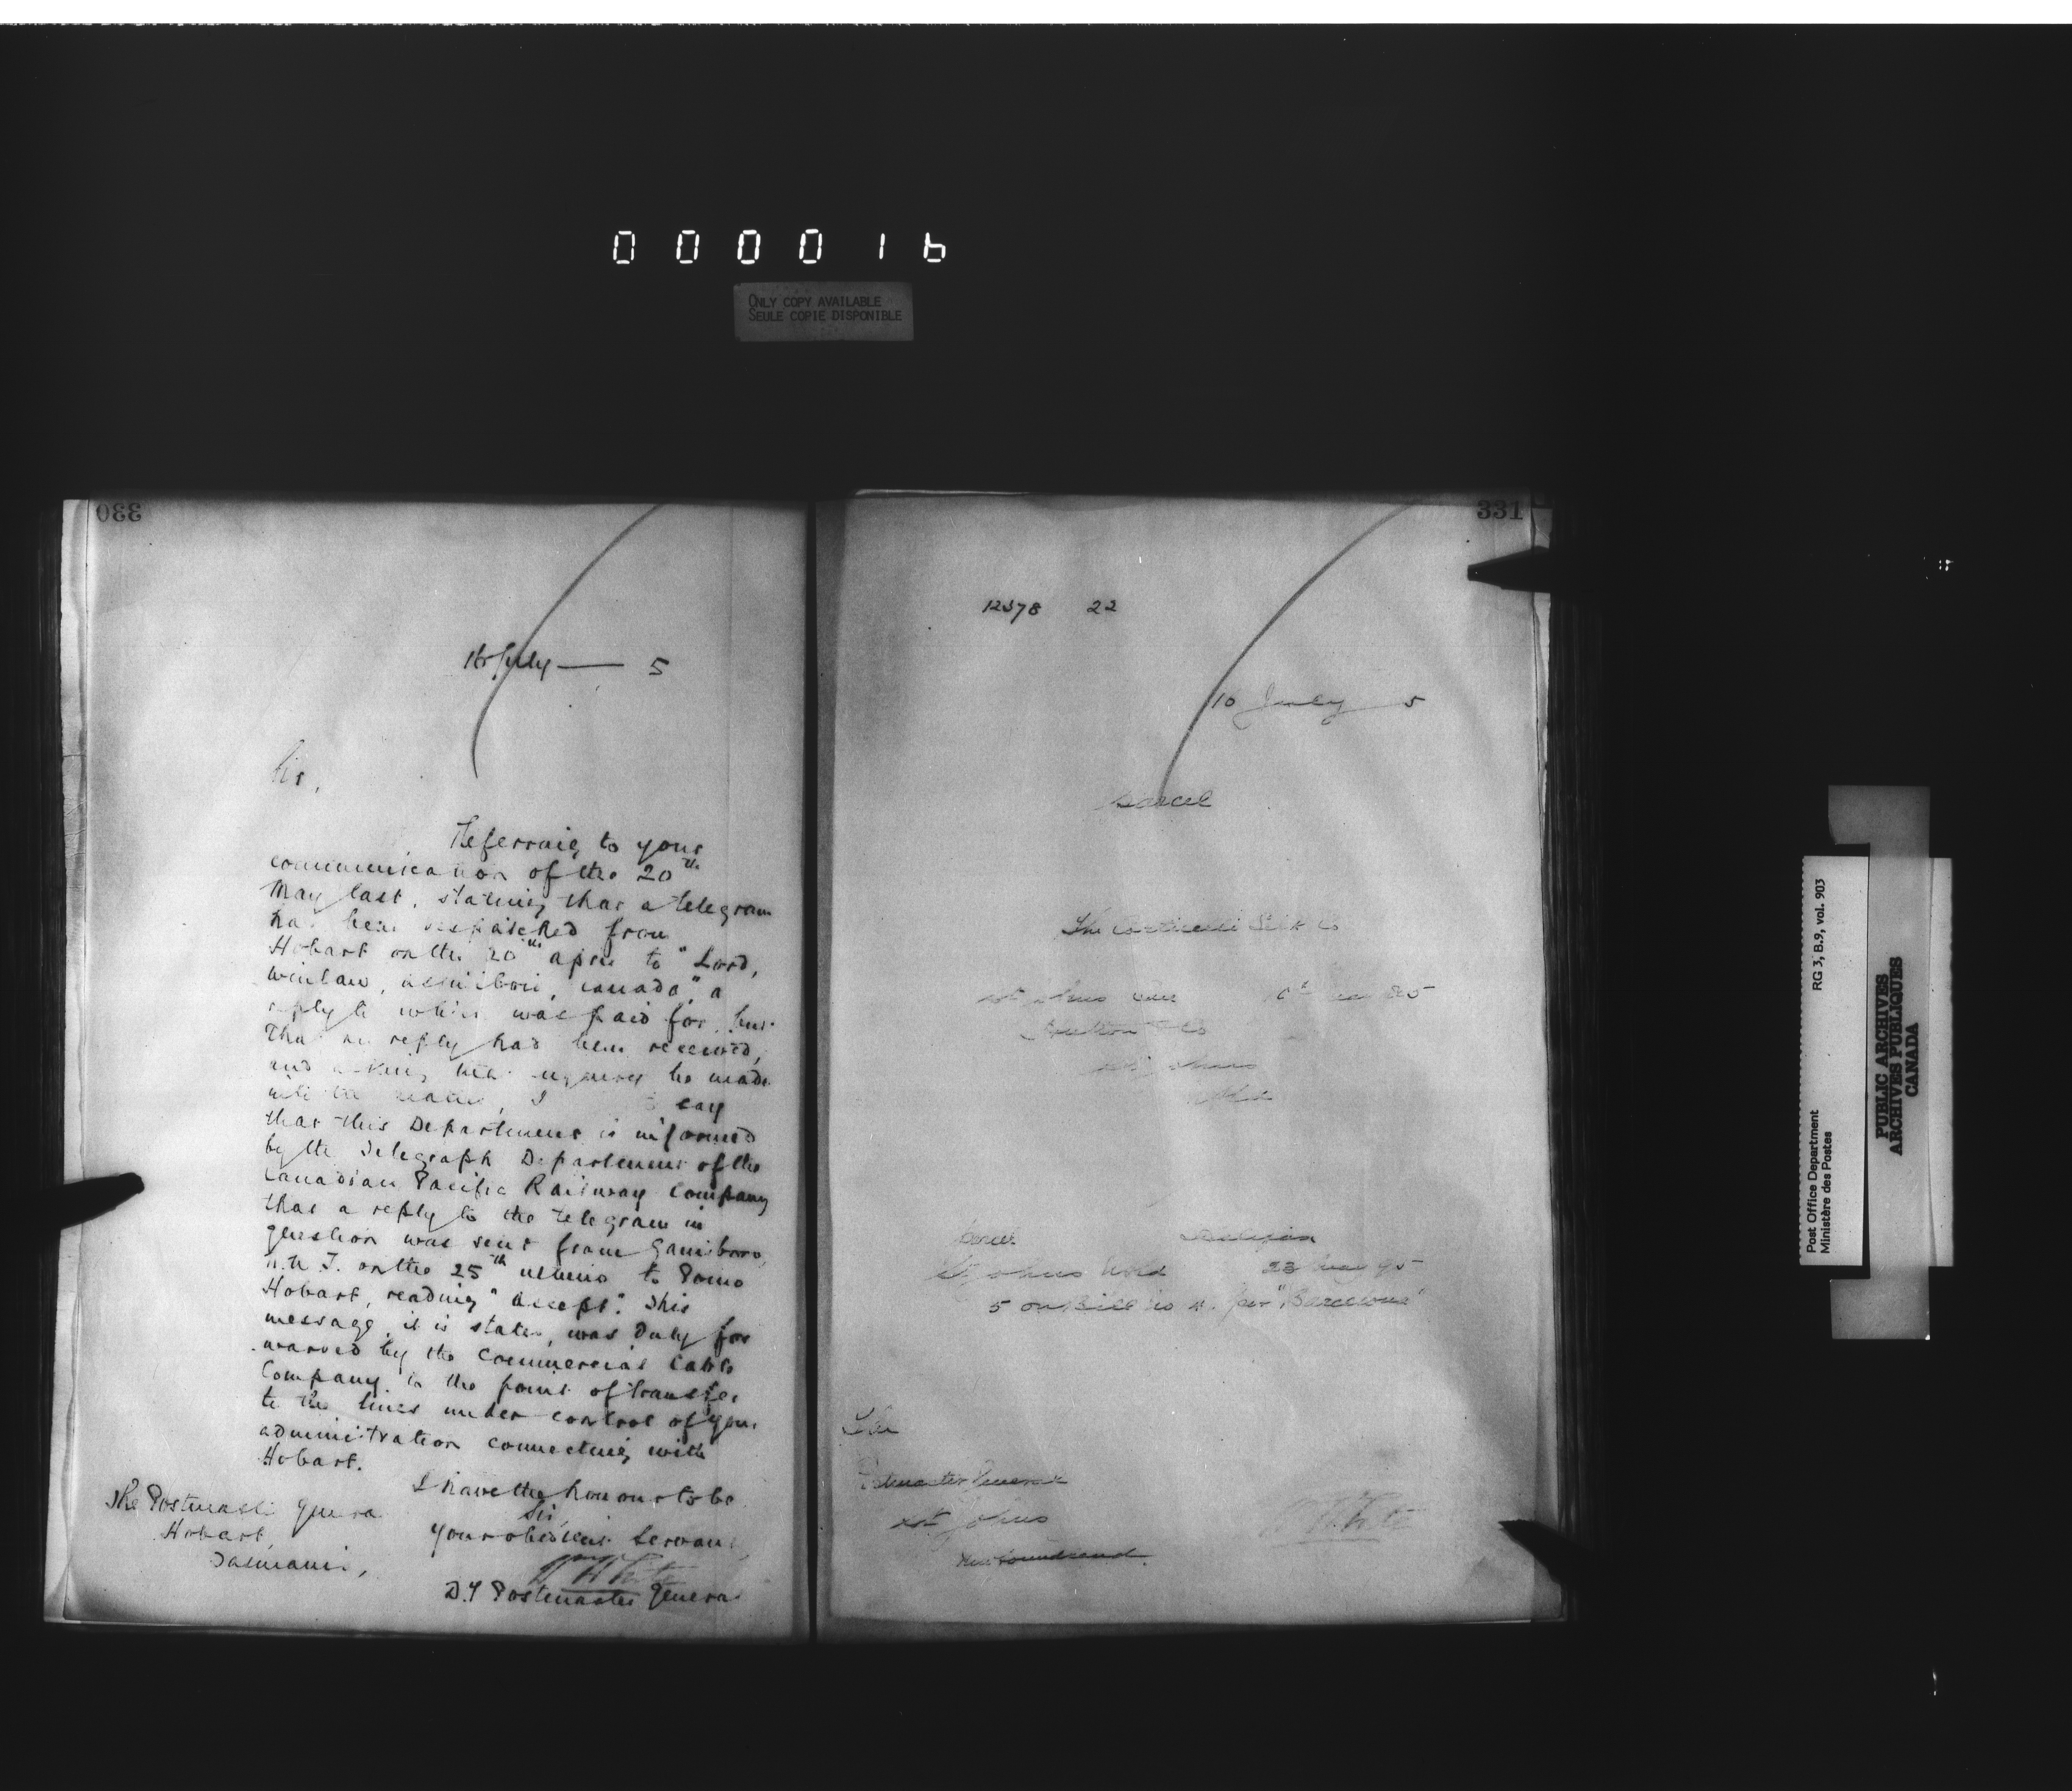 000016
ONLY COPY AVAILABLE
SEULE COPIE DISPONIBLE
330
July — 5
Sir,
Referring to your
communication of the 20th
May last, stating that a telegram
had been despatched from
Hobart on the 20th April to "Lord,
Winlaw, Assiniboi, Canada," a
reply to which was paid for, but
that no reply had been received,
and asking that enquiry be made
into the matter, I say
that this Department is informed
by the Telegraph Department of the
Canadian Pacific Railway Company
that a reply to the telegram in
question was sent from Gainsboro,
N.W.T. on the 25th ultimo to
Hobart, reading "Accept". This
message, it is stated, was duly for
warded by the Commercial Cable
Company to the point of transfer
to the lines under control of your
administration connecting with
Hobart.
I have the honour to be
Sir,
Your obedient Servant
W White
D.P Postmaster General
The Postmaster General
Hobart,
Tasmania,
331
12378 22
10 July 5
Parcel
The Corticelli Silk Co
St Johns
& Co
St Johns
Nfld
Parcel Halifax
St Johns Nfld 23 May 95
5 on Bill No per "Barcelona"
The
Postmaster General
St Johns
Newfoundland.
W White
Post Office Department RG 3, B.9, vol. 903
Ministère des Postes
PUBLIC ARCHIVES
ARCHIVES PUBLIQUES
CANADA